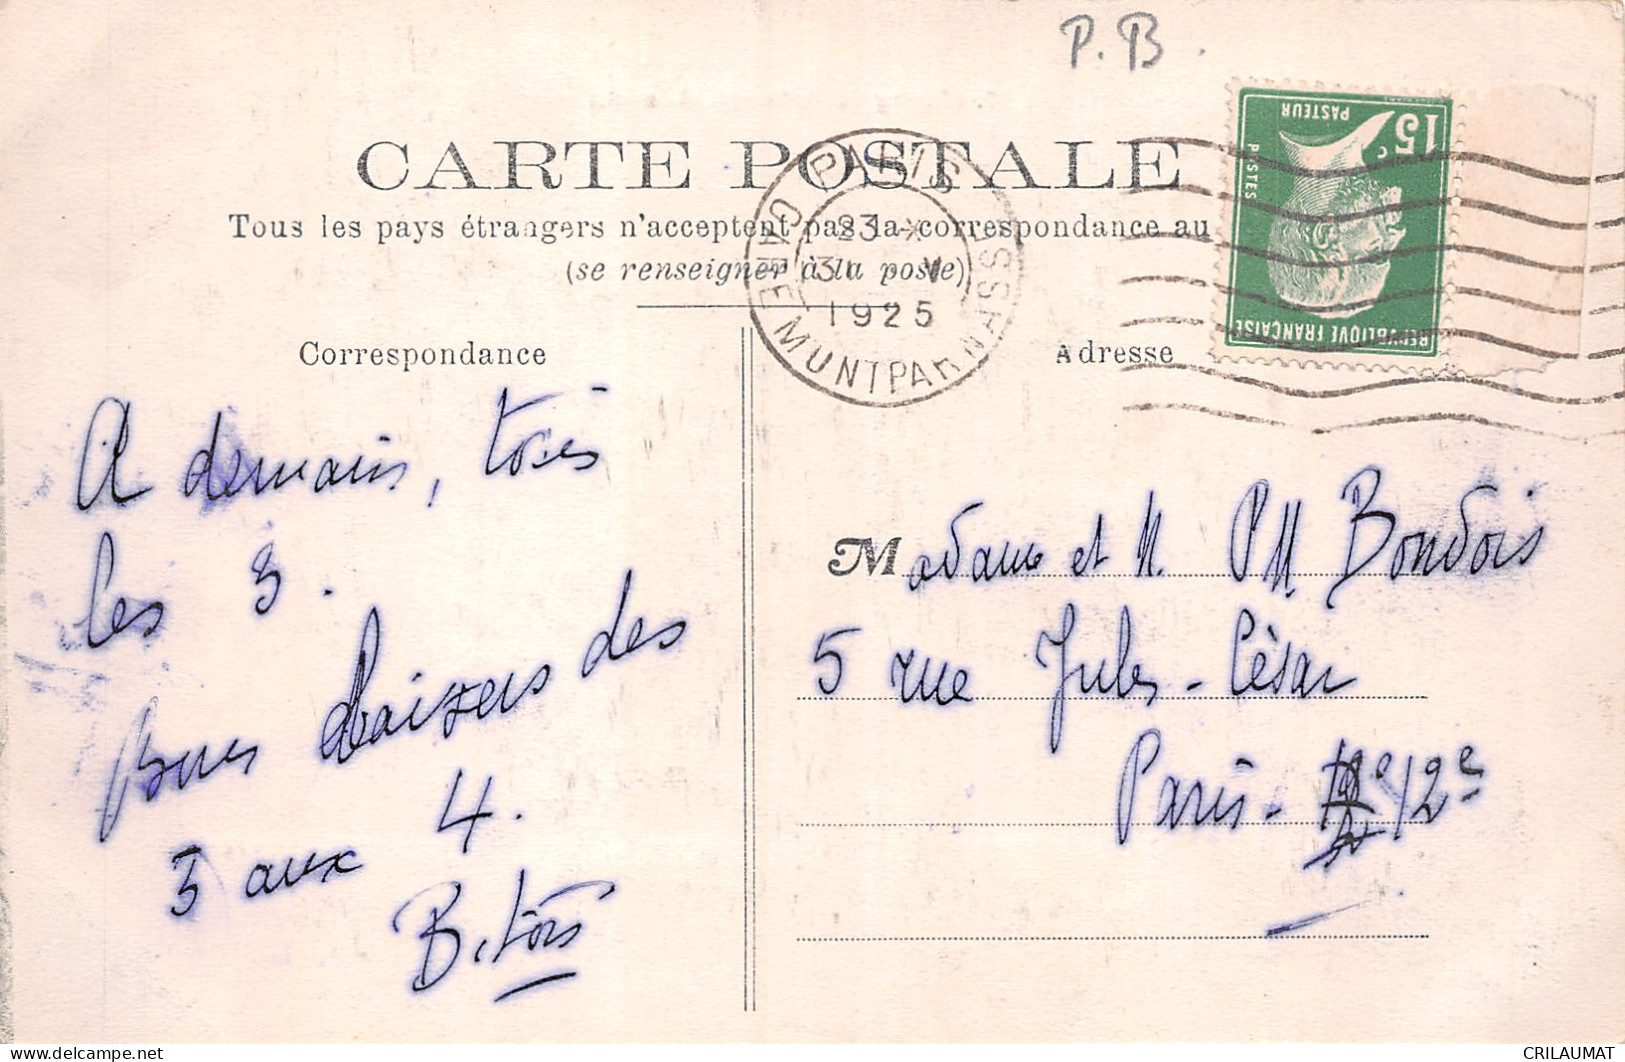 P. B.
CARTE POSTALE
Tous les pays étrangers n'acceptent pas la correspondance au
(se renseigner à la poste)
PARIS
GARE MONTPARNASSE
23 *
31 V
1925
15 c
PASTEUR
POSTES
REPUBLIQUE FRANÇAISE
Correspondance
Adresse
A demain, tous
les 3.
Bons baisers des
3 aux 4.
Madame et M. PM Bondois
5 rue Jules-César
Paris - 12e
delcampe.net
CRILAUMAT